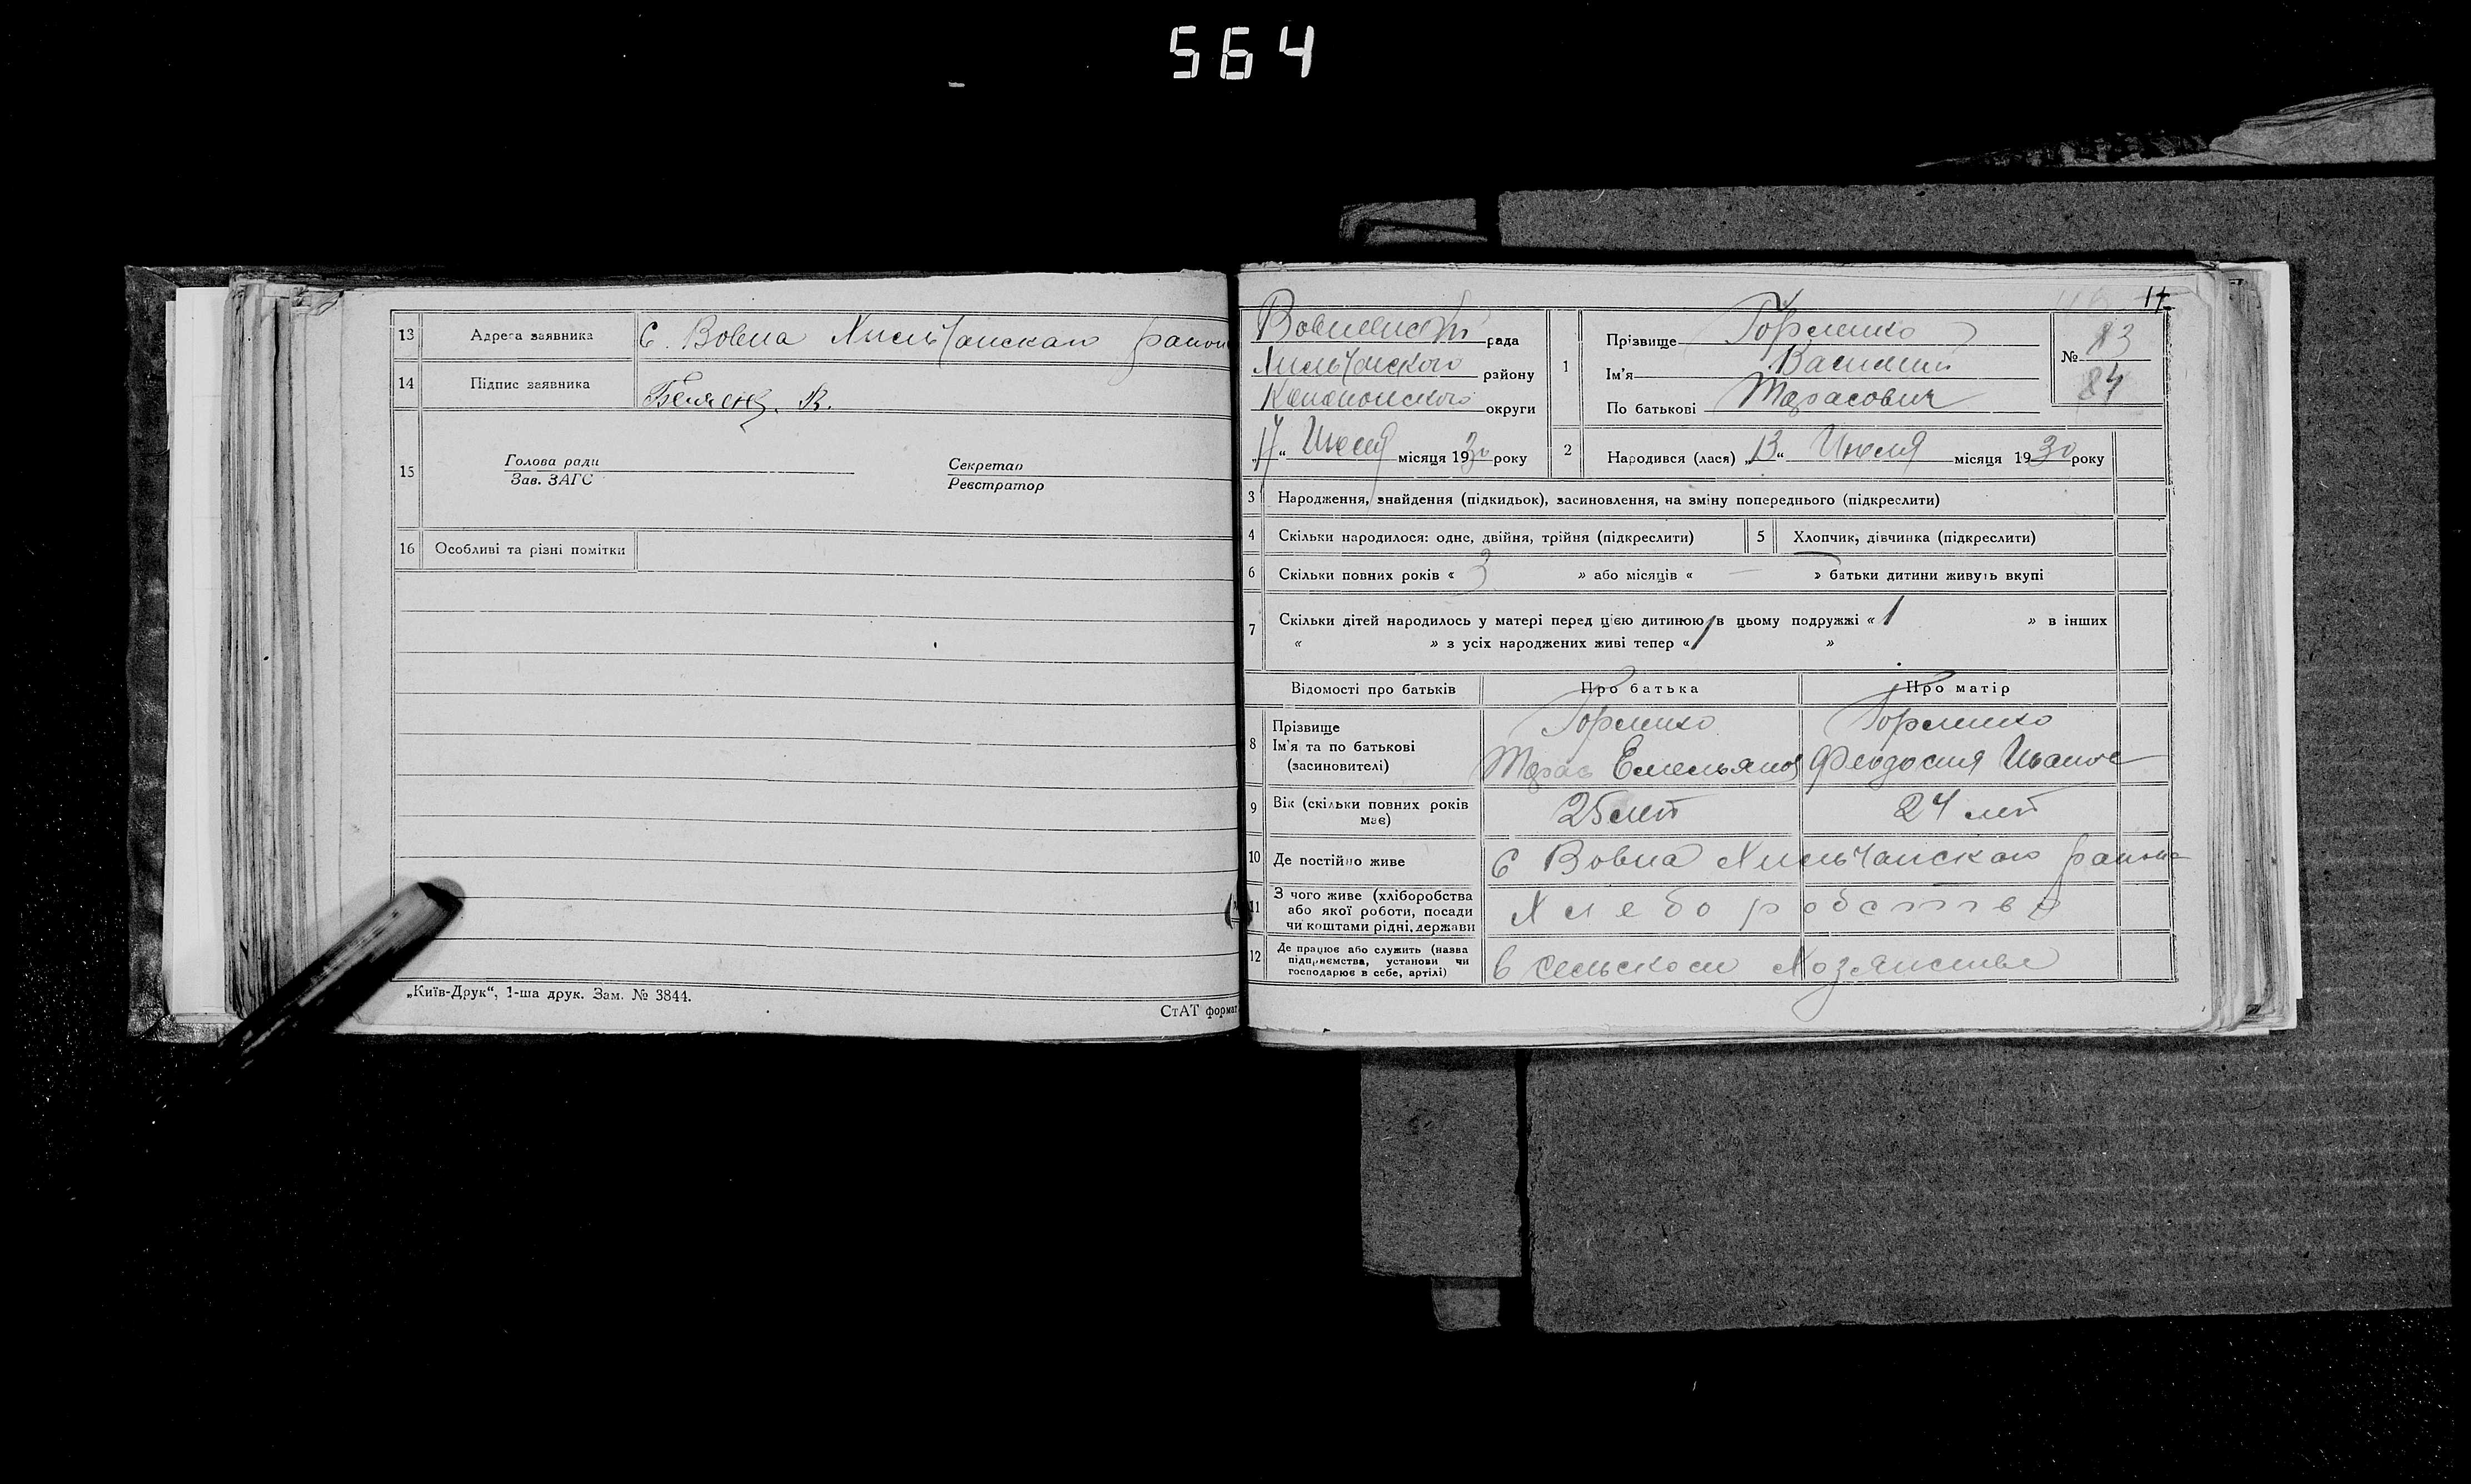 564
13 Адреса заявника С. Вовна Хильчанскаго район
14 Підпис заявника
15 Голова ради Секретар
Зав. ЗАГС Реєстратор
16 Особливі та різні помітки
„Київ-Друк“, 1-ша друк. Зам. № 3844.
СтАТ формат
рада
Хильчанского району
округи
„17“ Июля місяця 1930 року
1 Прізвище Горленко
Ім'я Василий
По батькові Тарасович
№ 83
84
2 Народився (лася) „13“ Июля місяця 1930 року
3 Народження, знайдення (підкидьок), засиновлення, на зміну попереднього (підкреслити)
4 Скільки народилося: одне, двійня, трійня (підкреслити) 5 Хлопчик, дівчинка (підкреслити)
6 Скільки повних років « 3 » або місяців « — » батьки дитини живуть вкупі
7 Скільки дітей народилось у матері перед цією дитиною в цьому подружжі « 1 » в інших
« » з усіх народжених живі тепер « 1 »
Відомості про батьків Про батька Про матір
8 Прізвище Горленко Горленко
Ім'я та по батькові Тарас Емельянов Феодосия Иванов
(засновителі)
9 Вік (скільки повних років має) 25 лет 24 лет
10 Де постійно живе С Вовна Хильчанскаго района
11 З чого живе (хліборобства Хлеборобство
або якої роботи, посади
чи коштами рідні, держави
12 Де працює або служить (назва в сельском хозяистве
підприємства, установи чи
господарює в себе, артілі)